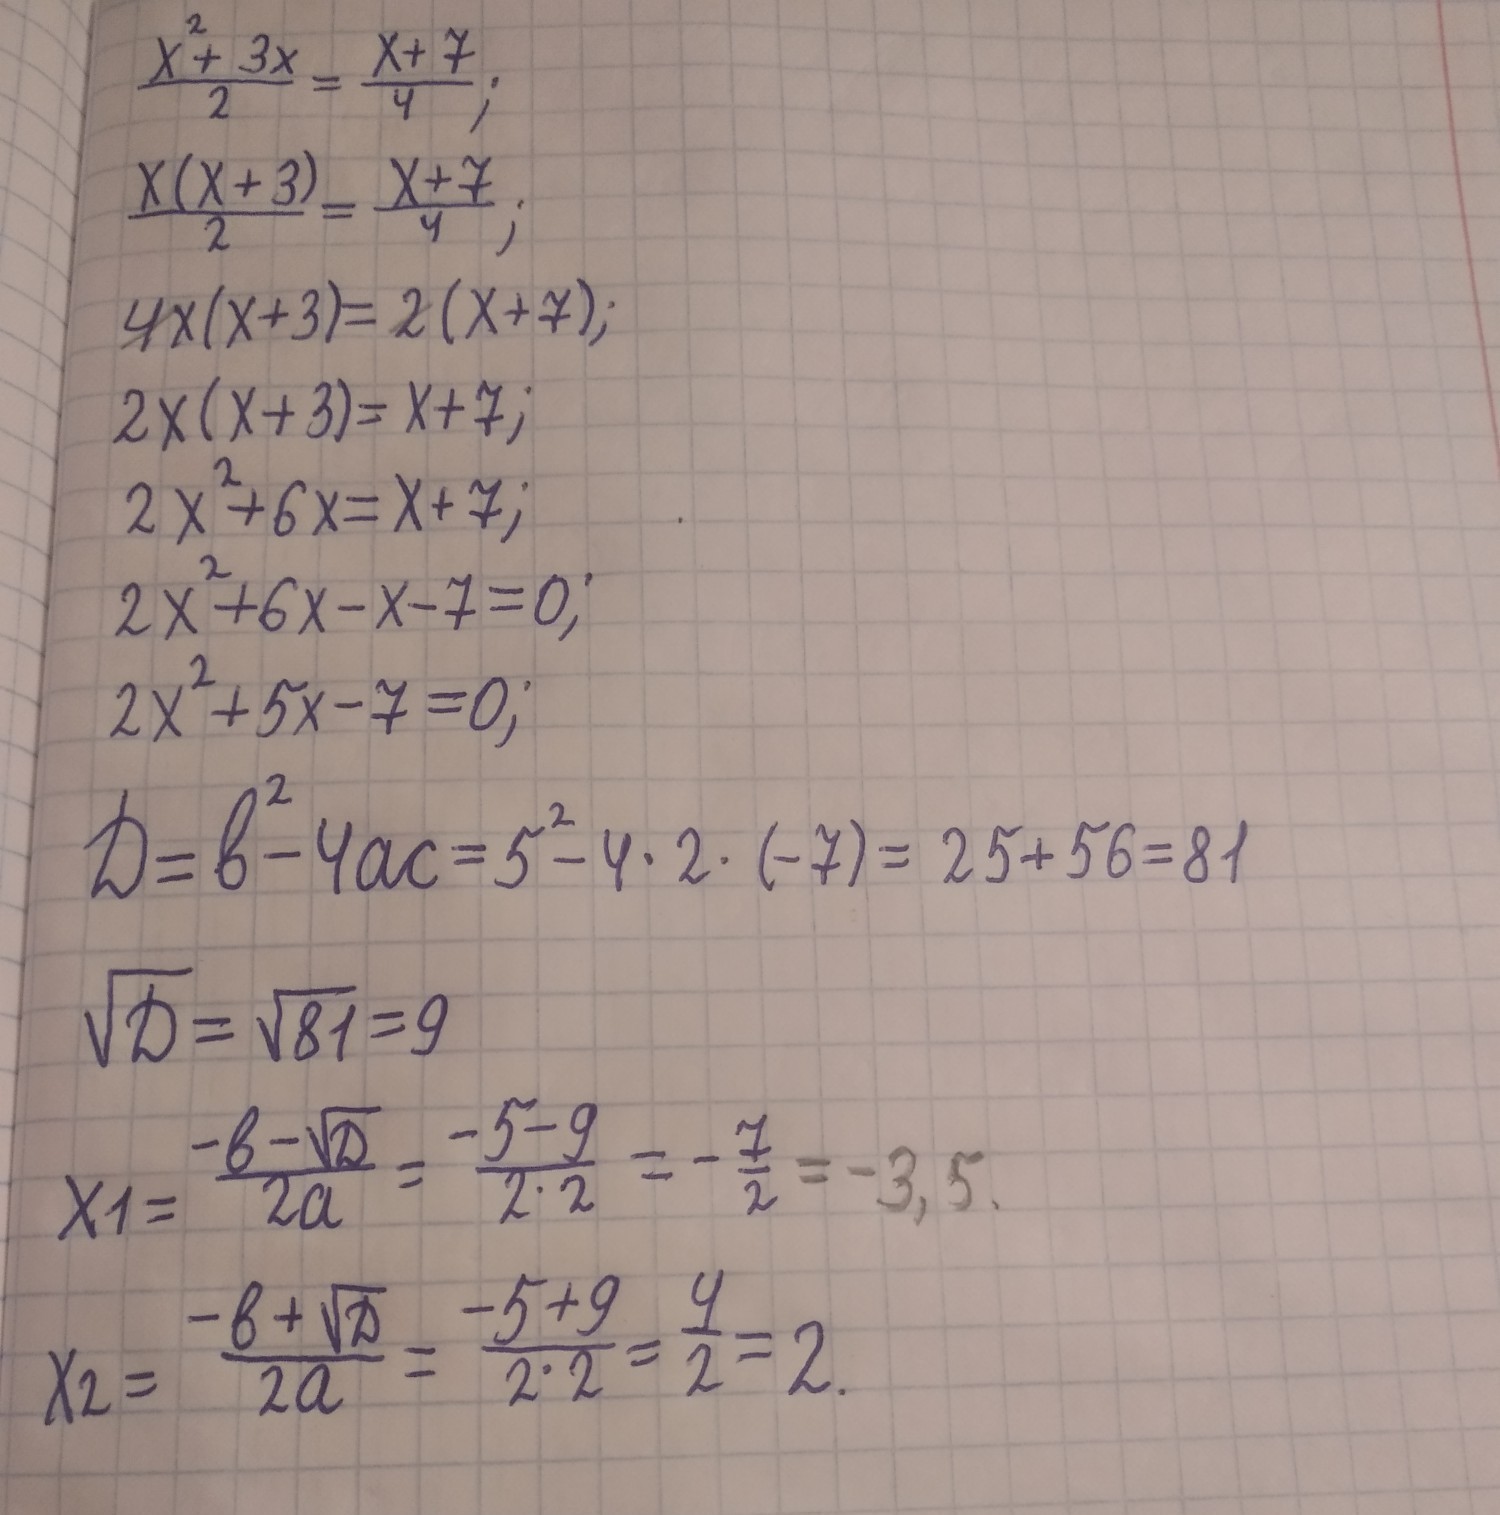 x² + 3x / 2 = x + 7 / 4;
x(x + 3) / 2 = x + 7 / 4;
4x(x + 3) = 2(x + 7);
2x(x + 3) = x + 7;
2x² + 6x = x + 7;
2x² + 6x - x - 7 = 0;
2x² + 5x - 7 = 0;
D = b² - 4ac = 5² - 4 · 2 · (-7) = 25 + 56 = 81
√D = √81 = 9
x1 = -b - √D / 2a = -5 - 9 / 2 · 2 = - 7 / 2 = -3,5.
x2 = -b + √D / 2a = -5 + 9 / 2 · 2 = 4 / 2 = 2.